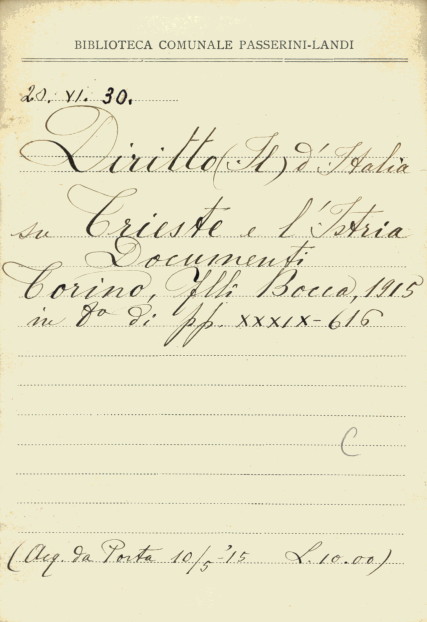 BIBLIOTECA COMUNALE PASSERINI-LANDI
20. XI. 30.
Diritto (Il) d'Italia
su Trieste e l'Istria
Documenti
Torino, Flli Bocca, 1915
in 8º di pp. XXXIX-616
C
(Acq. da Porta 10/5 '15 L. 10.00)